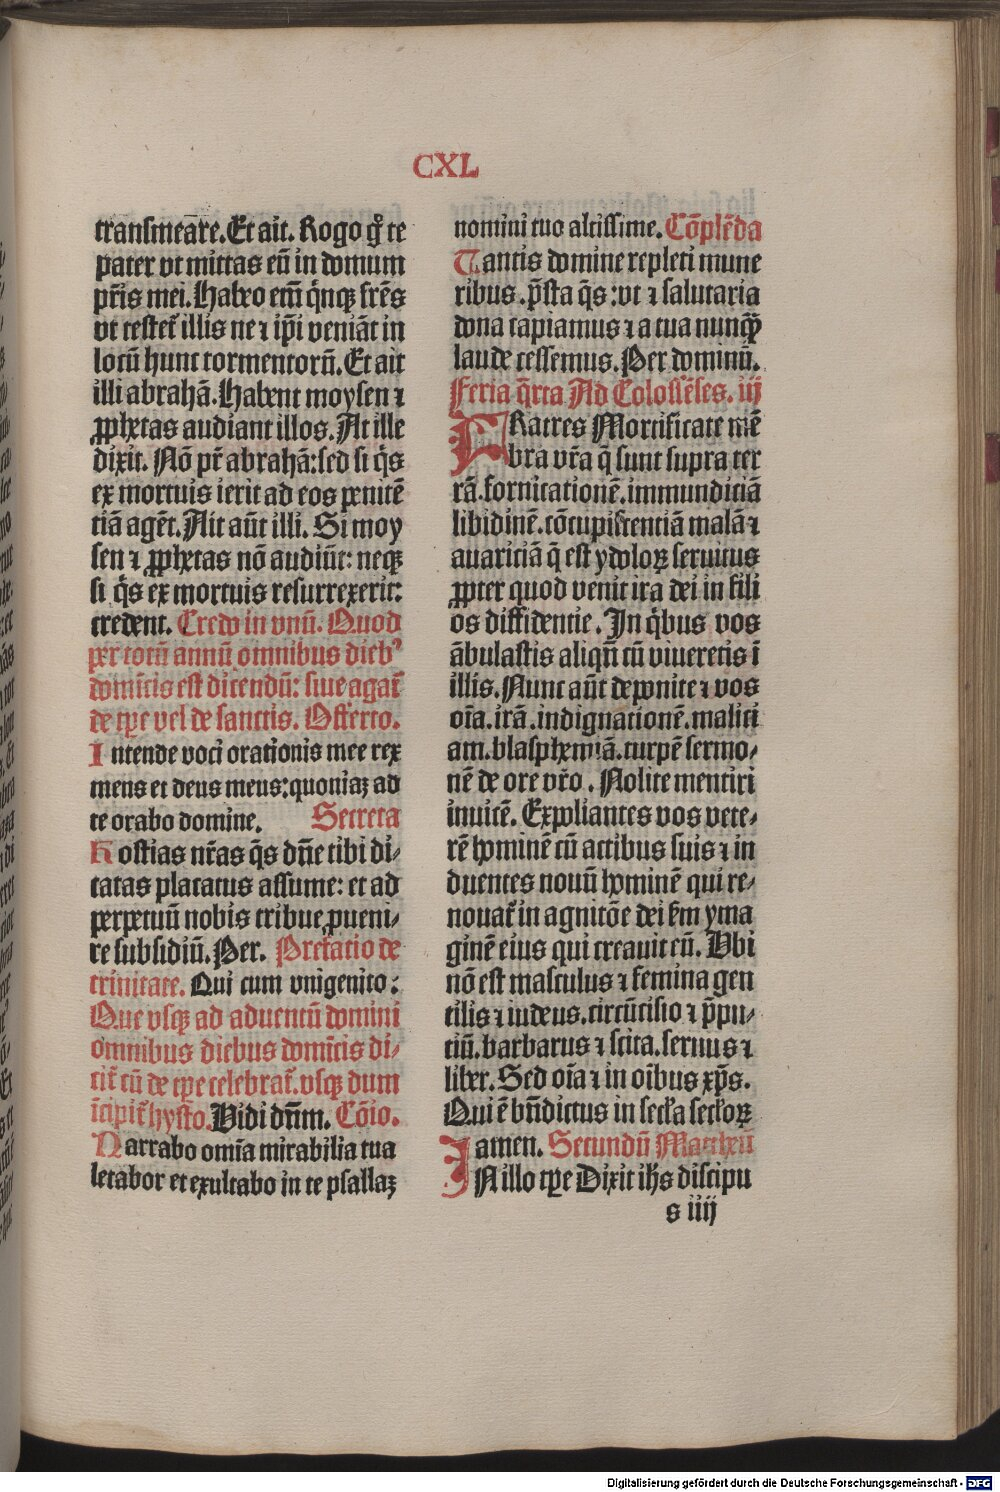 CXL
transmeare. Et ait. Rogo gͦ te
pater vt mittas eū in domum
pr̄is mei. Habeo em̄ q̇nqꝫ fr̄es
vt testet᷑ illis ne ⁊ ip̄i veniāt in
locū hunc tormentorū. Et ait
illi abrahā. Habent moysen ⁊
ꝓphetas audiant illos. At ille
dixit. Nō pr̄ abrahā: sed si q̇s
ex mortuis ierit ad eos penitē
tiā agēt. Ait aūt illi. Si moy
sen ⁊ ꝓphetas nō audiūt: neqꝫ
si q̇s ex mortuis resurrexerit:
credent. Credo in vnū. Quod
per totū annū omnibus diebꝰ
domīcis est dicendū: siue agat᷑
de tꝑe vel de sanctis. Offerto.
Intende voci orationis mee rex
meus et deus meus: quoniaꝫ ad
te orabo domine. Secreta
Hostias nr̄as q̄s dn̄e tibi di⸗
catas placatus assume: et ad
perpetuū nobis tribue ꝓueni⸗
re subsidiū. Per. Prefatio de
trinitate. Qui cum vnigenito:
Que vsqꝫ ad aduentū domini
omnibus diebus domīcis di⸗
cit᷑ cū de tꝑe celebrat᷑. vsqꝫ dum
īcipit᷑ hysto. Vidi dn̄m. Cōio.
Narrabo omīa mirabilia tua
letabor et exultabo in te psallaꝫ
nomini tuo altissime. Cōplēda
Tantis domine repleti mune
ribus. p̄sta q̄s: vt ⁊ salutaria
dona capiamus ⁊ a tua nunqꝫ̄
laude cessemus. Per dominū.
Feria q̄rta Ad Colossēses. iij
FRatres Mortificate mē
bra vr̄a q̄ sunt supra ter
rā. fornicationē. immundiciā
libidinē. cōcupiscentiā malā ⁊
auariciā q̄ est ydoloꝝ seruitus
ꝓpter quod venit ira dei in fili
os diffidentie. In q̇bus vos
ābulastis aliqn̄ cū viueretis ī
illis. Nunc aūt deponite ⁊ vos
oīa. irā. indignationē. malici
am. blasphemiā. turpē sermo⸗
nē de ore vr̄o. Nolite mentiri
inuicē. Expoliantes vos vete⸗
rē hominē cū actibus suis ⁊ in
duentes nouū hominē qui re⸗
nouat᷑ in agnitōe dei ẜm yma
ginē eius qui creauit eū. Vbi
nō est masculus ⁊ femina gen
tilis ⁊ iudeus. circūcisio ⁊ p̄pu⸗
ciū. barbarus ⁊ scita. seruus ⁊
liber. Sed oīa ⁊ in oībus xp̄s.
Qui ē bn̄dictus in secƚa secƚoꝝ
amen. Secundū Mattheū
IN illo tꝑe Dixit ih̄s discipu
s iiij
Digitalisierung gefördert durch die Deutsche Forschungsgemeinschaft - DFG